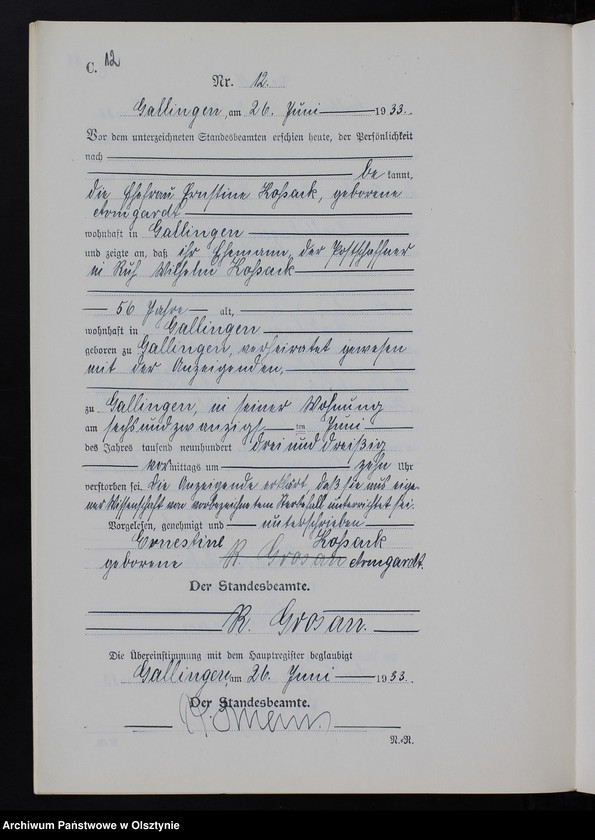 C. 12
Nr. 12.
Gallingen, am 26. Juni 1933.
Vor dem unterzeichneten Standesbeamten erschien heute, der Persönlichkeit
nach
be kannt,
die Ehefrau Ernstine Kossack, geborene
Armgardt
wohnhaft in Gallingen
und zeigte an, daß ihr Ehemann, der Postschaffner
in Ruh Wilhelm Kossack
56 Jahre alt,
wohnhaft in Gallingen
geboren zu Gallingen, verheiratet gewesen
mit der Anzeigenden,
zu Gallingen, in seiner Wohnung
am sechsundzwanzigsten Juni
des Jahres tausend neunhundert drei und dreißig
vormittags um zehn Uhr
verstorben sei. Die Anzeigende erklärt, daß sie aus eige-
ner Wissenschaft von vorbezeichnetem Sterbefall unterrichtet sei.
Vorgelesen, genehmigt und unterschrieben
Ernestine Kossack
geborene R. Grosan Armgardt.
Der Standesbeamte.
R. Grosan.
Die Übereinstimmung mit dem Hauptregister beglaubigt
Gallingen, am 26. Juni 1933.
Der Standesbeamte.
N.-R.
Archiwum Państwowe w Olsztynie